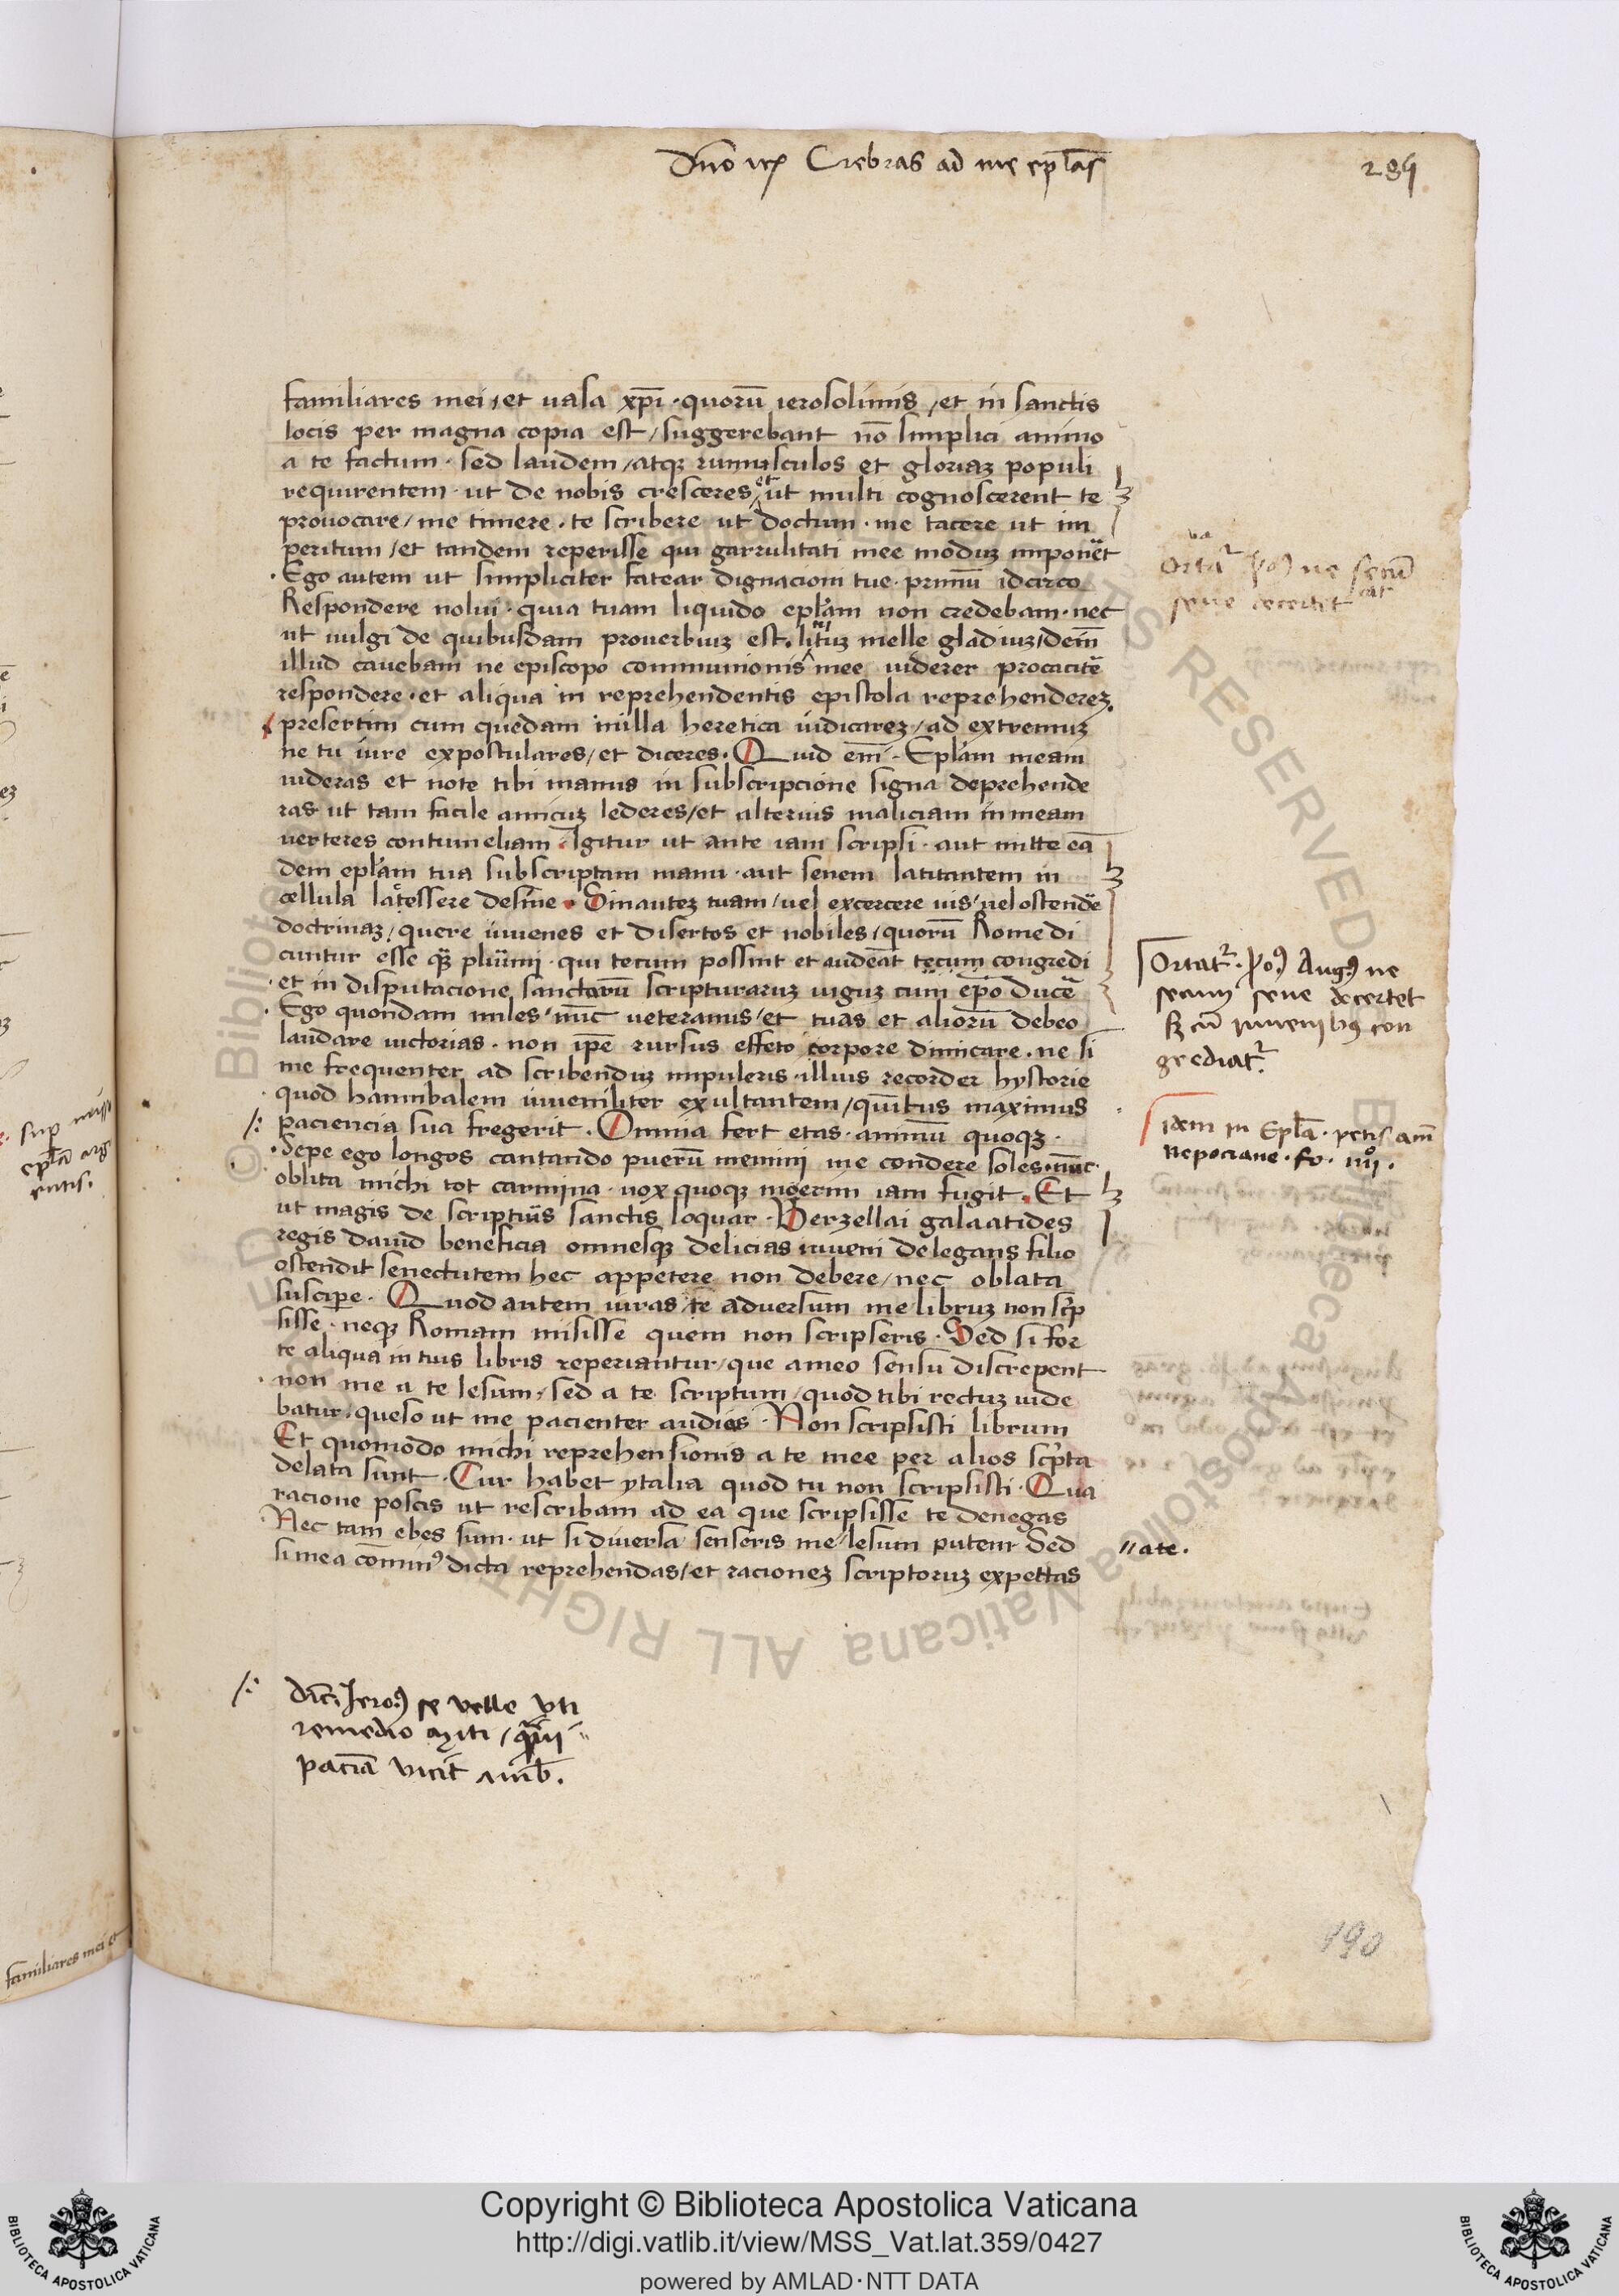 Dño ⁊c Crebras ad me ep̄las
289
familiares mei, et uasa xp̄i · quorū ierosolimis, et in sanctis
locis per magna copia est, suggerebant nō simplici animo
a te factum · sed laudem, atqꝫ rumusculos et gloriaꝫ populi
requirentem · ut de nobis cresceres, et ut multi cognoscerent te
prouocare, me timere · te scribere ut doctum · me tacere ut im
peritum, et tandem reperisse qui garrulitati mee moduꝫ imponēt
Ego autem ut simpliciter fatear dignacioni tue · primū idcirco
Respondere nolui · quia tuam liquido ep̄lam non credebam · nec
ut uulgi de quibusdam prouerbiuꝫ est · litūꝫ melle gladiuꝫ, dein̄
illud cauebam ne episcopo communionis mee uiderer procacitē
respondere · et aliqua in reprehendentis epistola reprehendereꝫ
presertim cum quedam in illa heretica iudicareꝫ, ad extremuꝫ
ne tu iure expostulares, et diceres · Quid em̄ · Ep̄lam meam
uideras et note tibi manus in subscripcione signa deprehende
ras ut tam facile amicuꝫ lederes, et alterius maliciam in meam
uerteres contumeliam · Igitur ut ante iam scripsi · aut mitte eā
dem ep̄lam tua subscriptam manu · aut senem latitantem in
cellula lacessere desine · Sin auteꝫ tuam, uel excercere uis, uel ostendē
doctrinaꝫ, quere iuuenes et disertos et nobiles, quorū Rome di
cuntur esse qꝫ plurimi · qui tecum possint et audeāt tecum congredi
et in disputacione sanctarū scripturaruꝫ iuguꝫ cum ep̄o ducē
Ego quondam miles, nūc ueteranus, et tuas et aliorū debeo
laudare uictorias · non ip̄e rursus effeto corpore dimicare · ne si
me frequenter ad scribenduꝫ impuleris · illius recorder hystorie
quod hannibalem iuueniliter exultantem, quintus maximus
paciencia sua fregerit · Omnia fert etas · animū quoqꝫ ·
Sepe ego longos cantando puerū memini me condere soles · nūc
oblita michi tot carmina · uox quoqꝫ moerim iam fugit · Et
ut magis de scripturis sanctis loquar · Berzellai galaatides
regis dauid beneficia omnesqꝫ delicias iuueni delegans filio
ostendit senectutem hec appetere non debere, nec oblata
suscipere · Quod autem iuras te aduersum me libruꝫ non scrip
sisse · neqꝫ Romam misisse quem non scripseris · Sed si for
te aliqua in tuis libris reperiantur, que a meo sensu discrepent
non me a te lesum, sed a te scriptum, quod tibi rectuꝫ uide
batur · queso ut me pacienter audias · Non scripsisti librum
Et quomodo michi reprehensionis a te mee per alios scp̄ta
delata sunt · Cur habet ytalia quod tu non scripsisti · Qua
racione poscis ut rescribam ad ea que scripsisse te denegas
Nec tam ebes sum · ut si diuersa senseris me lesum putem Sed
si mea cominꝰ dicta reprehendas, et racioneꝫ scriptoruꝫ expettas
Ortat᷑ · Augꝰ ne
secum sene decertet
sꝫ cū iuuenibꝰ con
grediat᷑
idem in Ep̄la · petis
nepociane · fo · iiijº ·
// a te ·
Jeroꝰ se velle vti
remedio
paciā vicit
familiares mei et
190
Copyright © Biblioteca Apostolica Vaticana
http://digi.vatlib.it/view/MSS_Vat.lat.359/0427
powered by AMLAD·NTT DATA
BIBLIOTECA APOSTOLICA VATICANA
BIBLIOTECA APOSTOLICA VATICANA